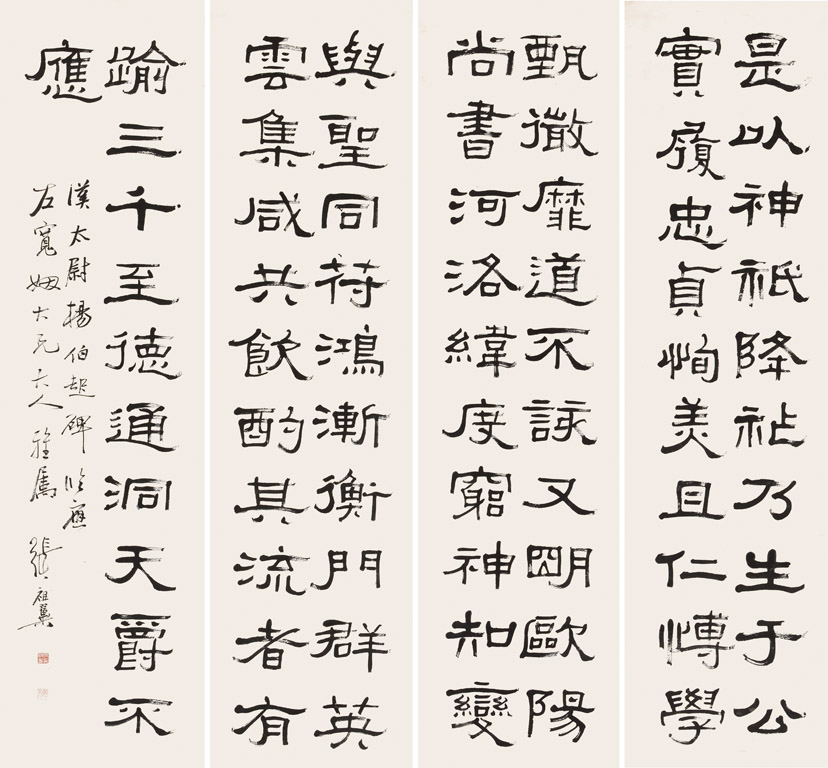 是以神祇降祉乃生于公
實履忠貞恂美且仁愽學
甄微靡道不該又朙歐陽
尚書河洛緯度窮神知變
與聖同符鴻漸衡門群英
雲集咸共飲酌其流者有
踰三千至德通洞天爵不
應
漢太尉楊伯起碑臨應
左寬姻大兄大人雅屬 張祖翼